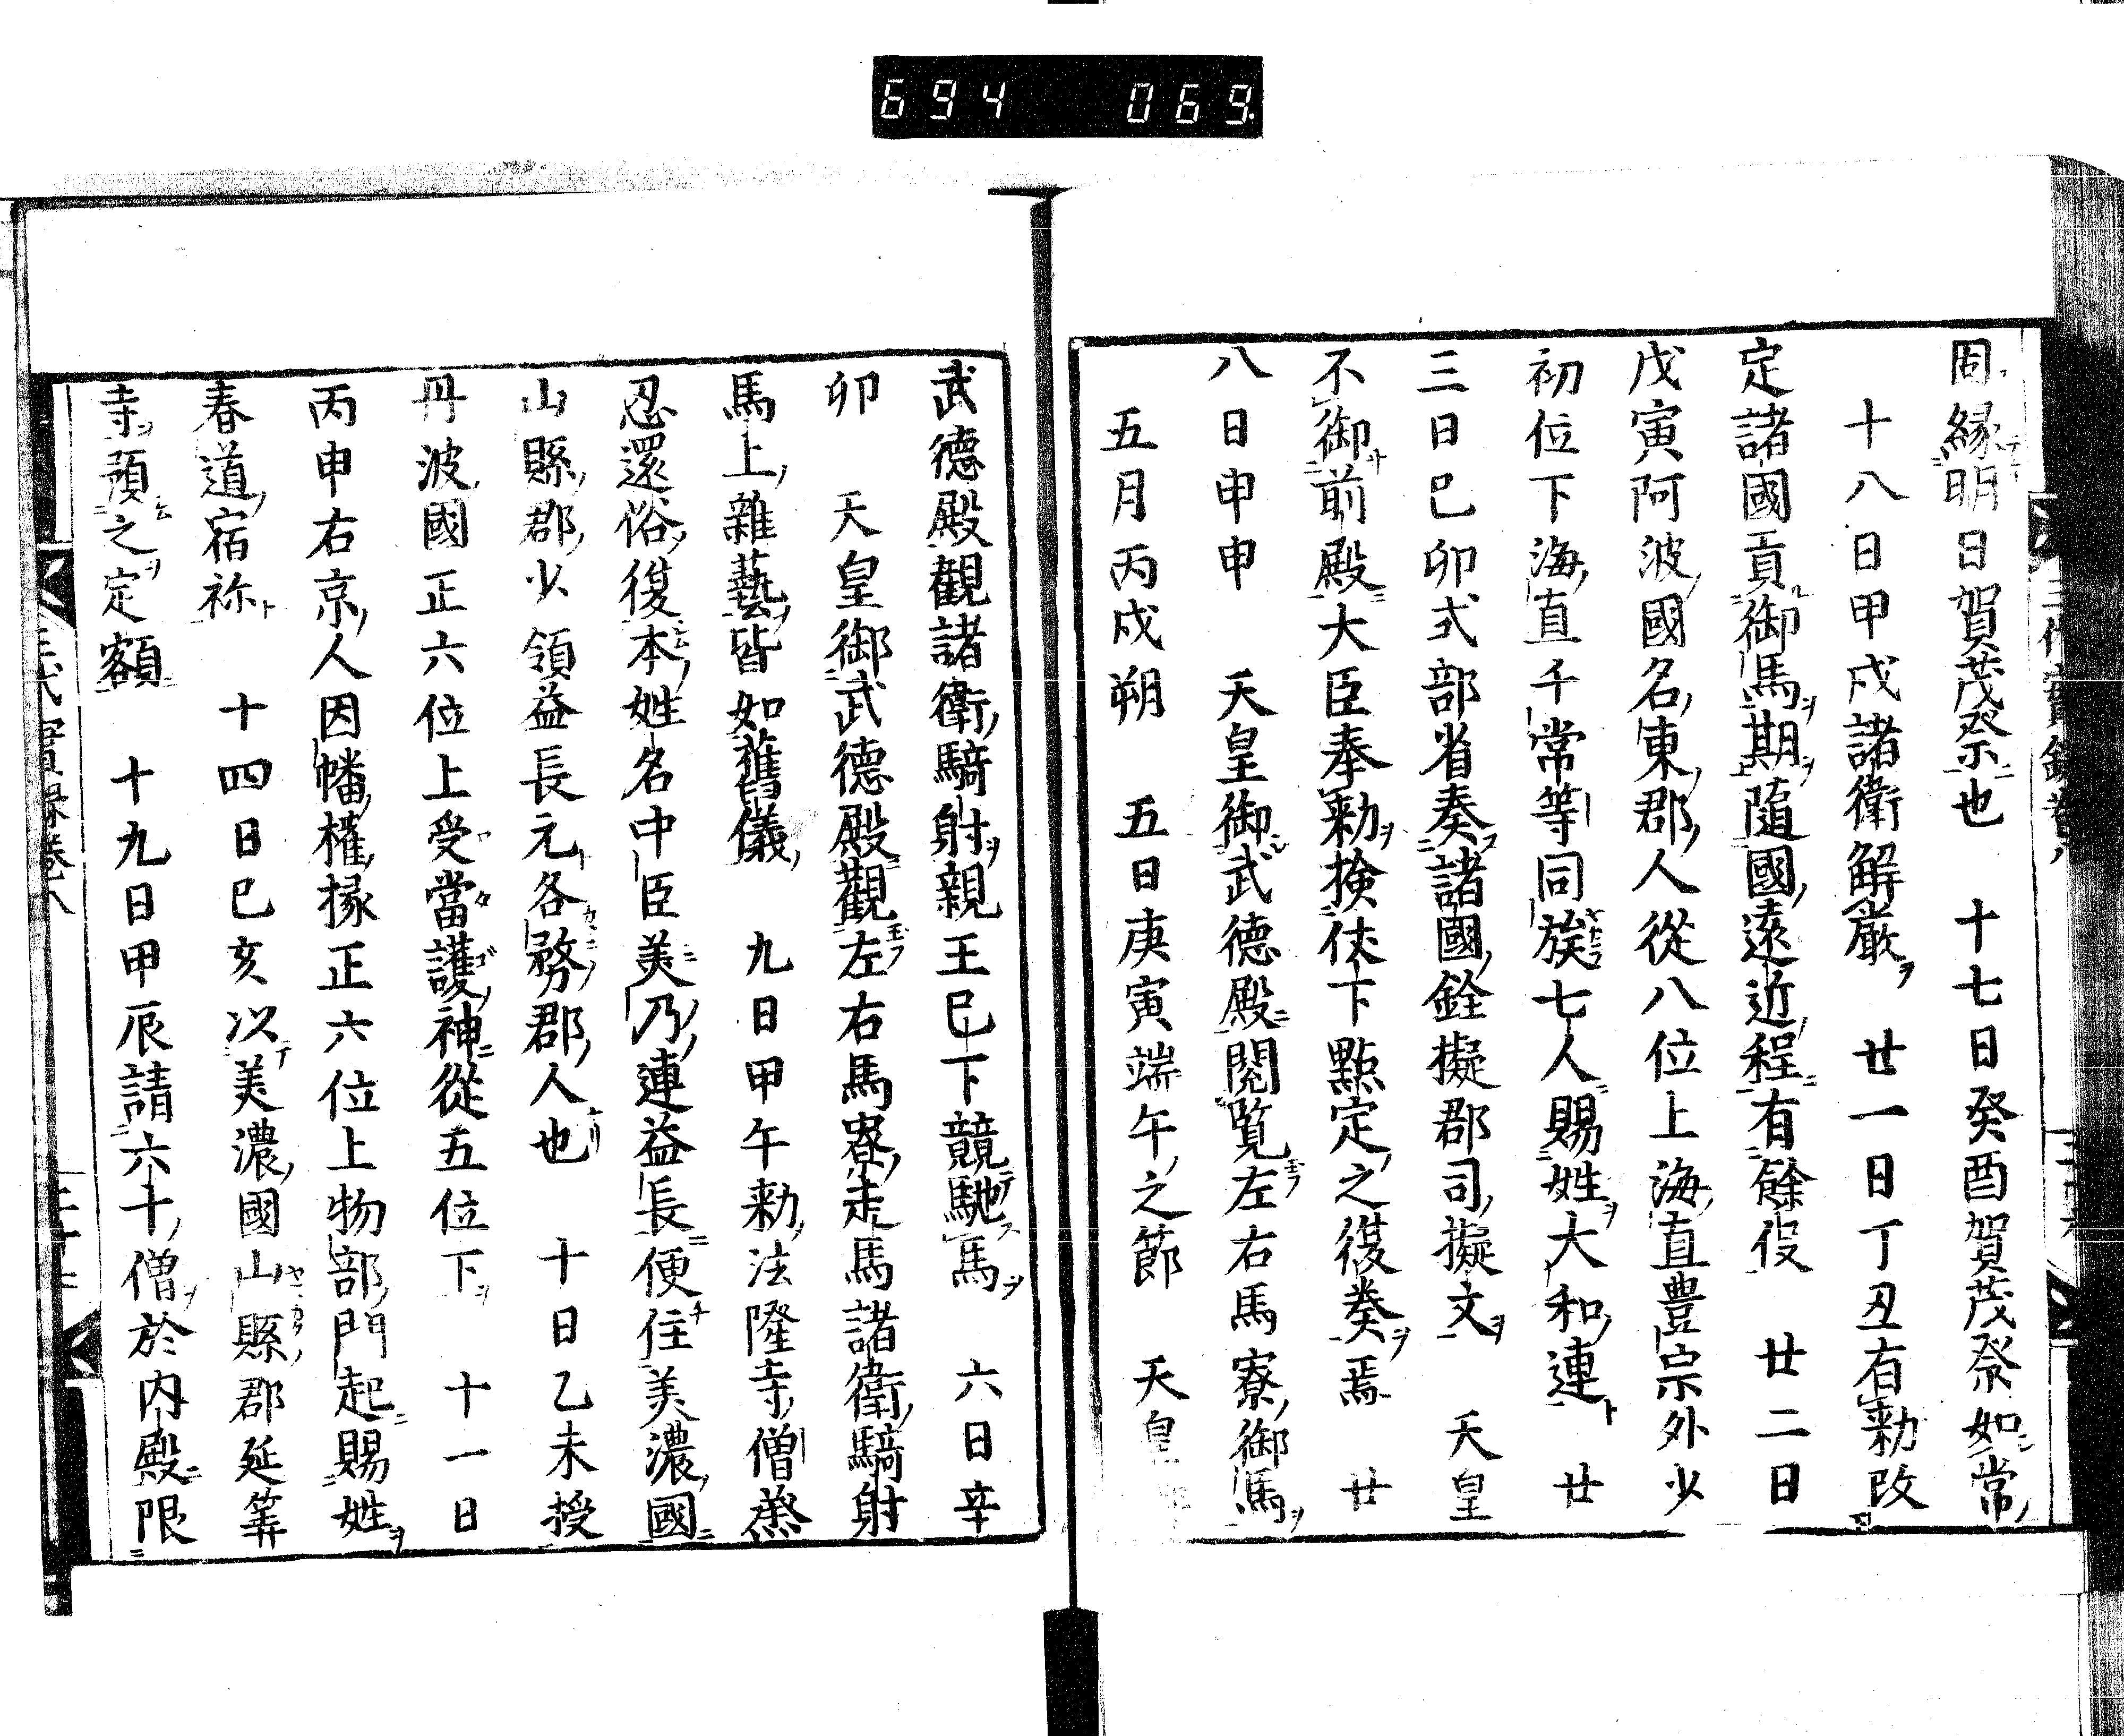 694 069.
固緣明日賀茂祭也　十七日癸酉賀茂祭如常
十八日甲戌諸衛解嚴　廿一日丁丑有勅改
定諸國貢御馬期隨國遠近程有餘促　廿二日
戊寅阿波國名東郡人從八位上海直豊宗外少
初位下海直千常等同族七人賜姓大和連　廿
三日己卯式部省奏諸國銓擬郡司擬文　天皇
不御前殿大臣奉勅撿侅下點定之復奏焉　廿
八日申申　天皇御武德殿閱覽左右馬寮御馬
五月丙戌朔　五日庚寅端午之節　天皇
武德殿觀諸衛騎射親王已下競馳馬　六日辛
卯　天皇御武德殿觀左右馬寮走馬諸衛騎射
馬上雜藝皆如舊儀　九日甲午勅法隆寺僧薫
忍還俗復本姓名中臣美乃連益長便住美濃國
山縣郡少領益長元各務郡人也　十日乙未授
丹波國正六位上受當護神從五位下　十一日
丙申右京人因幡權掾正六位上物部門起賜姓
春道宿祢　十四日己亥以美濃國山縣郡延筭
寺預之定額　十九日甲辰請六十僧於内殿限
三代實録卷八